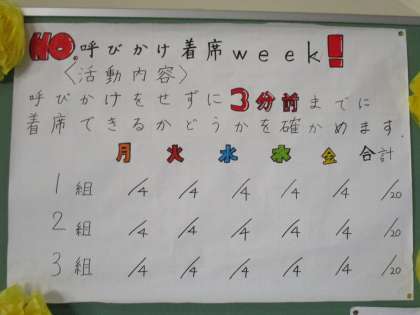 NO.呼びかけ着席week!
〈活動内容〉
呼びかけをせずに3分前までに
着席できるかどうかを確かめます
月 火 水 木 金 合計
1組 /4 /4 /4 /4 /4 /20
2組 /4 /4 /4 /4 /4 /20
3組 /4 /4 /4 /4 /4 /20